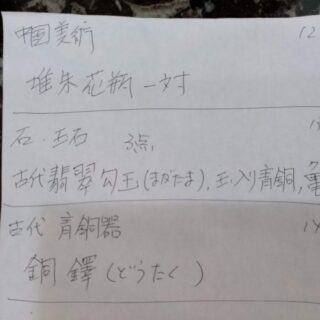 中国美術 12
堆朱花瓶一対
石・玉石 3点,
古代翡翠勾玉(まがたま),玉入り青銅,亀
古代 青銅器 14
銅鐸(どうたく)